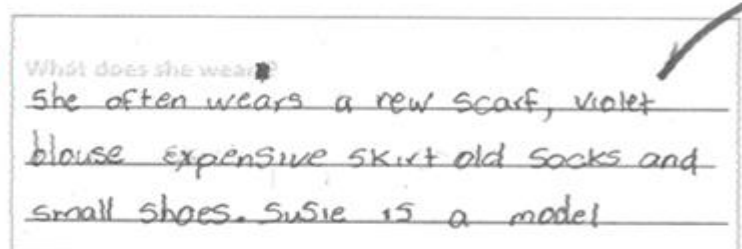 What does she wear?
she often wears a new scarf, violet
blouse expensive skirt old socks and
small shoes. Susie is a model